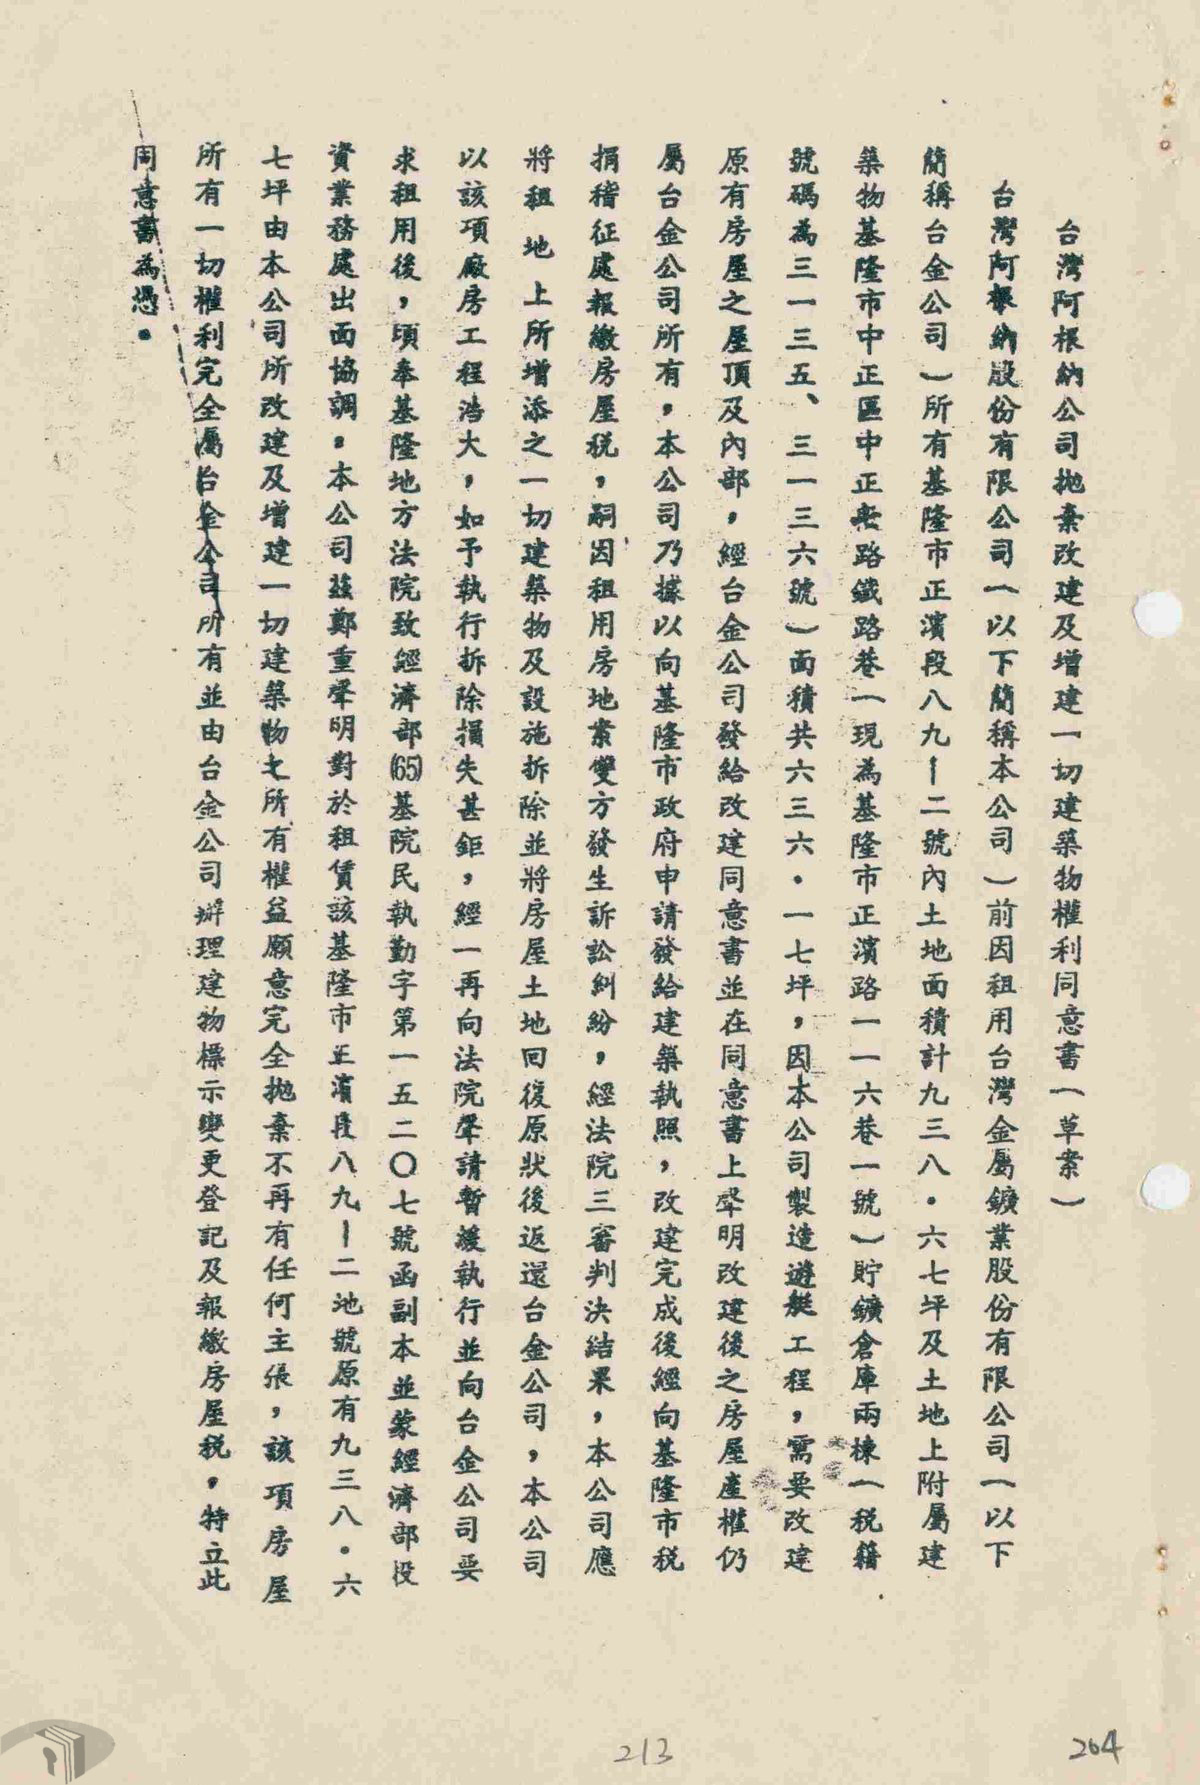 台灣阿根納公司拋棄改建及增建一切建築物權利同意書（草案）
台灣阿根納股份有限公司（以下簡稱本公司）前因租用台灣金屬鑛業股份有限公司（以下
簡稱台金公司）所有基隆市正濱段八九－二號內土地面積計九三八．六七坪及土地上附屬建
築物基隆市中正區中正路鐵路巷（現為基隆市正濱路一一六巷一號）貯鑛倉庫兩棟（稅籍
號碼為三一三五、三一三六號）面積共六三六．一七坪，因本公司製造遊艇工程，需要改建
原有房屋之屋頂及內部，經台金公司發給改建同意書並在同意書上聲明改建後之房屋產權仍
屬台金公司所有，本公司乃據以向基隆市政府申請發給建築執照，改建完成後經向基隆市稅
捐稽征處報繳房屋稅，嗣因租用房地案雙方發生訴訟糾紛，經法院三審判決結果，本公司應
將租地上所增添之一切建築物及設施拆除並將房屋土地回復原狀後返還台金公司，本公司
以該項廠房工程浩大，如予執行拆除損失甚鉅，經一再向法院聲請暫緩執行並向台金公司要
求租用後，頃奉基隆地方法院致經濟部(65)基院民執勤字第一五二〇七號函副本並蒙經濟部投
資業務處出面協調。本公司茲鄭重聲明對於租賃該基隆市正濱段八九－二地號原有九三八．六
七坪由本公司所改建及增建一切建築物之所有權益願意完全拋棄不再有任何主張，該項房屋
所有一切權利完全屬台金公司所有並由台金公司辦理建物標示變更登記及報繳房屋稅，特立此
同意書為憑。
213
264